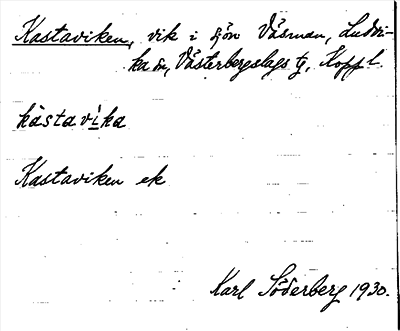 Kastaviken, vik i sjön Väsman, Ludvi-
ka sn, Västerbergslags tg, Kopp l.
kàstavìka
Kastaviken ek
Karl Söderberg 1930.